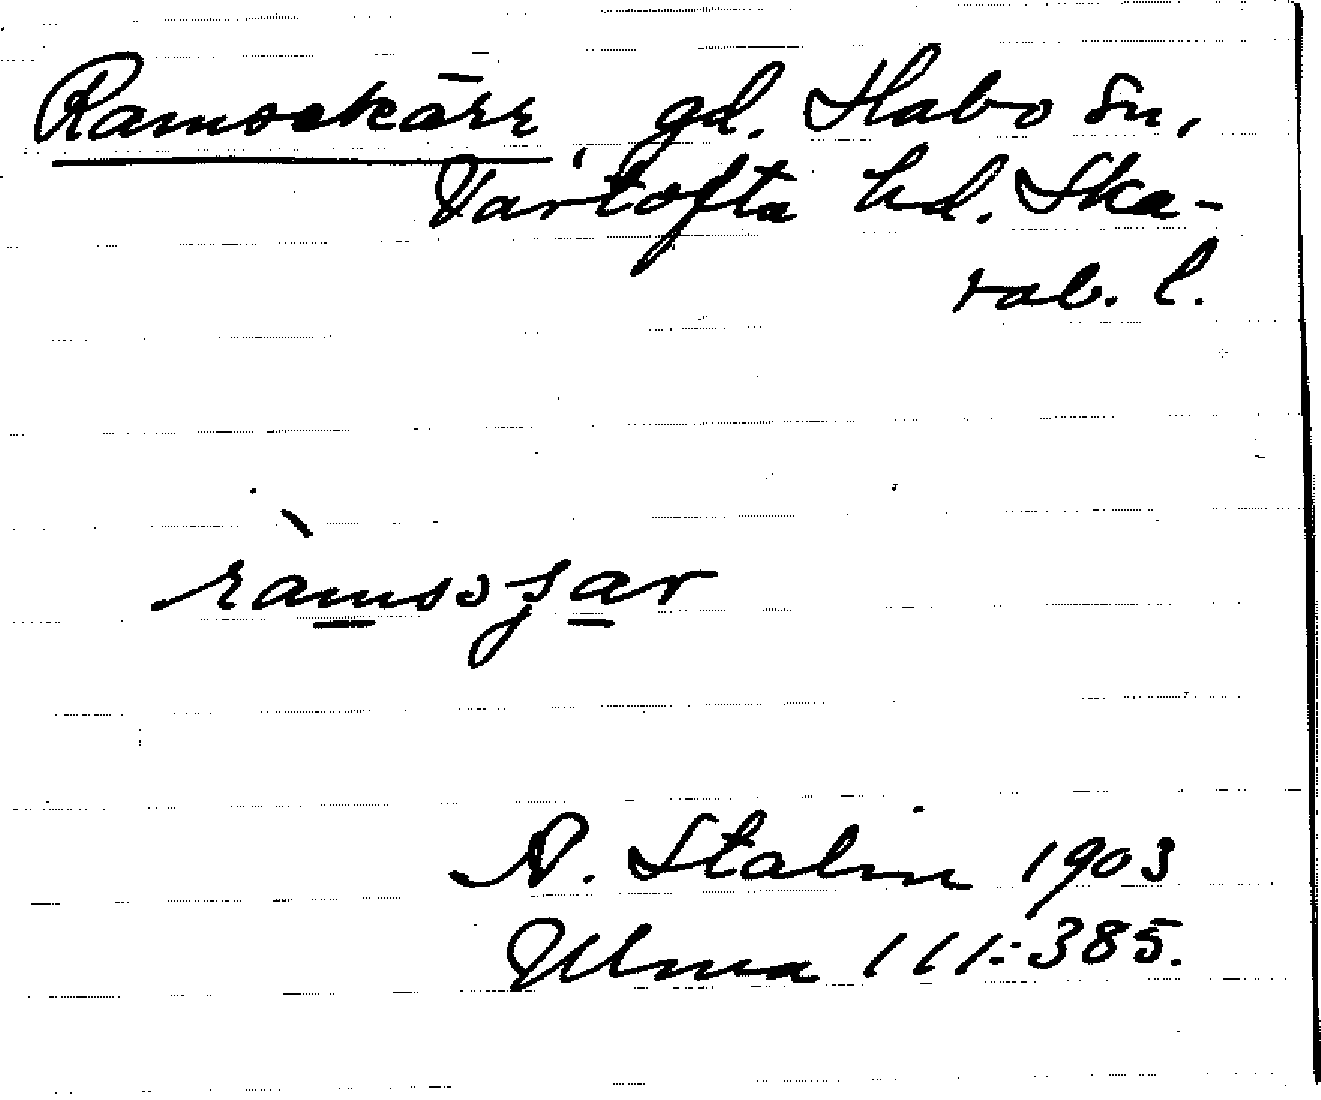 Ramsekärr, gd. Habo sn,
Vartofta hd. Ska-
rab. l.
A. Stalin 1903
Ulma 111:385.